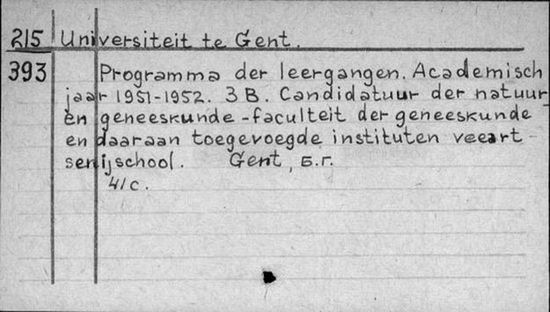 215 Universiteit te Gent.
393 Programma der leergangen. Academisch
jaar 1951-1952. 3 B. Candidatuur der natuur
en geneeskunde - faculteit der geneeskunde
en daaraan toegevoegde instituten veeart -
senijschool. Gent, s.r.
41c.